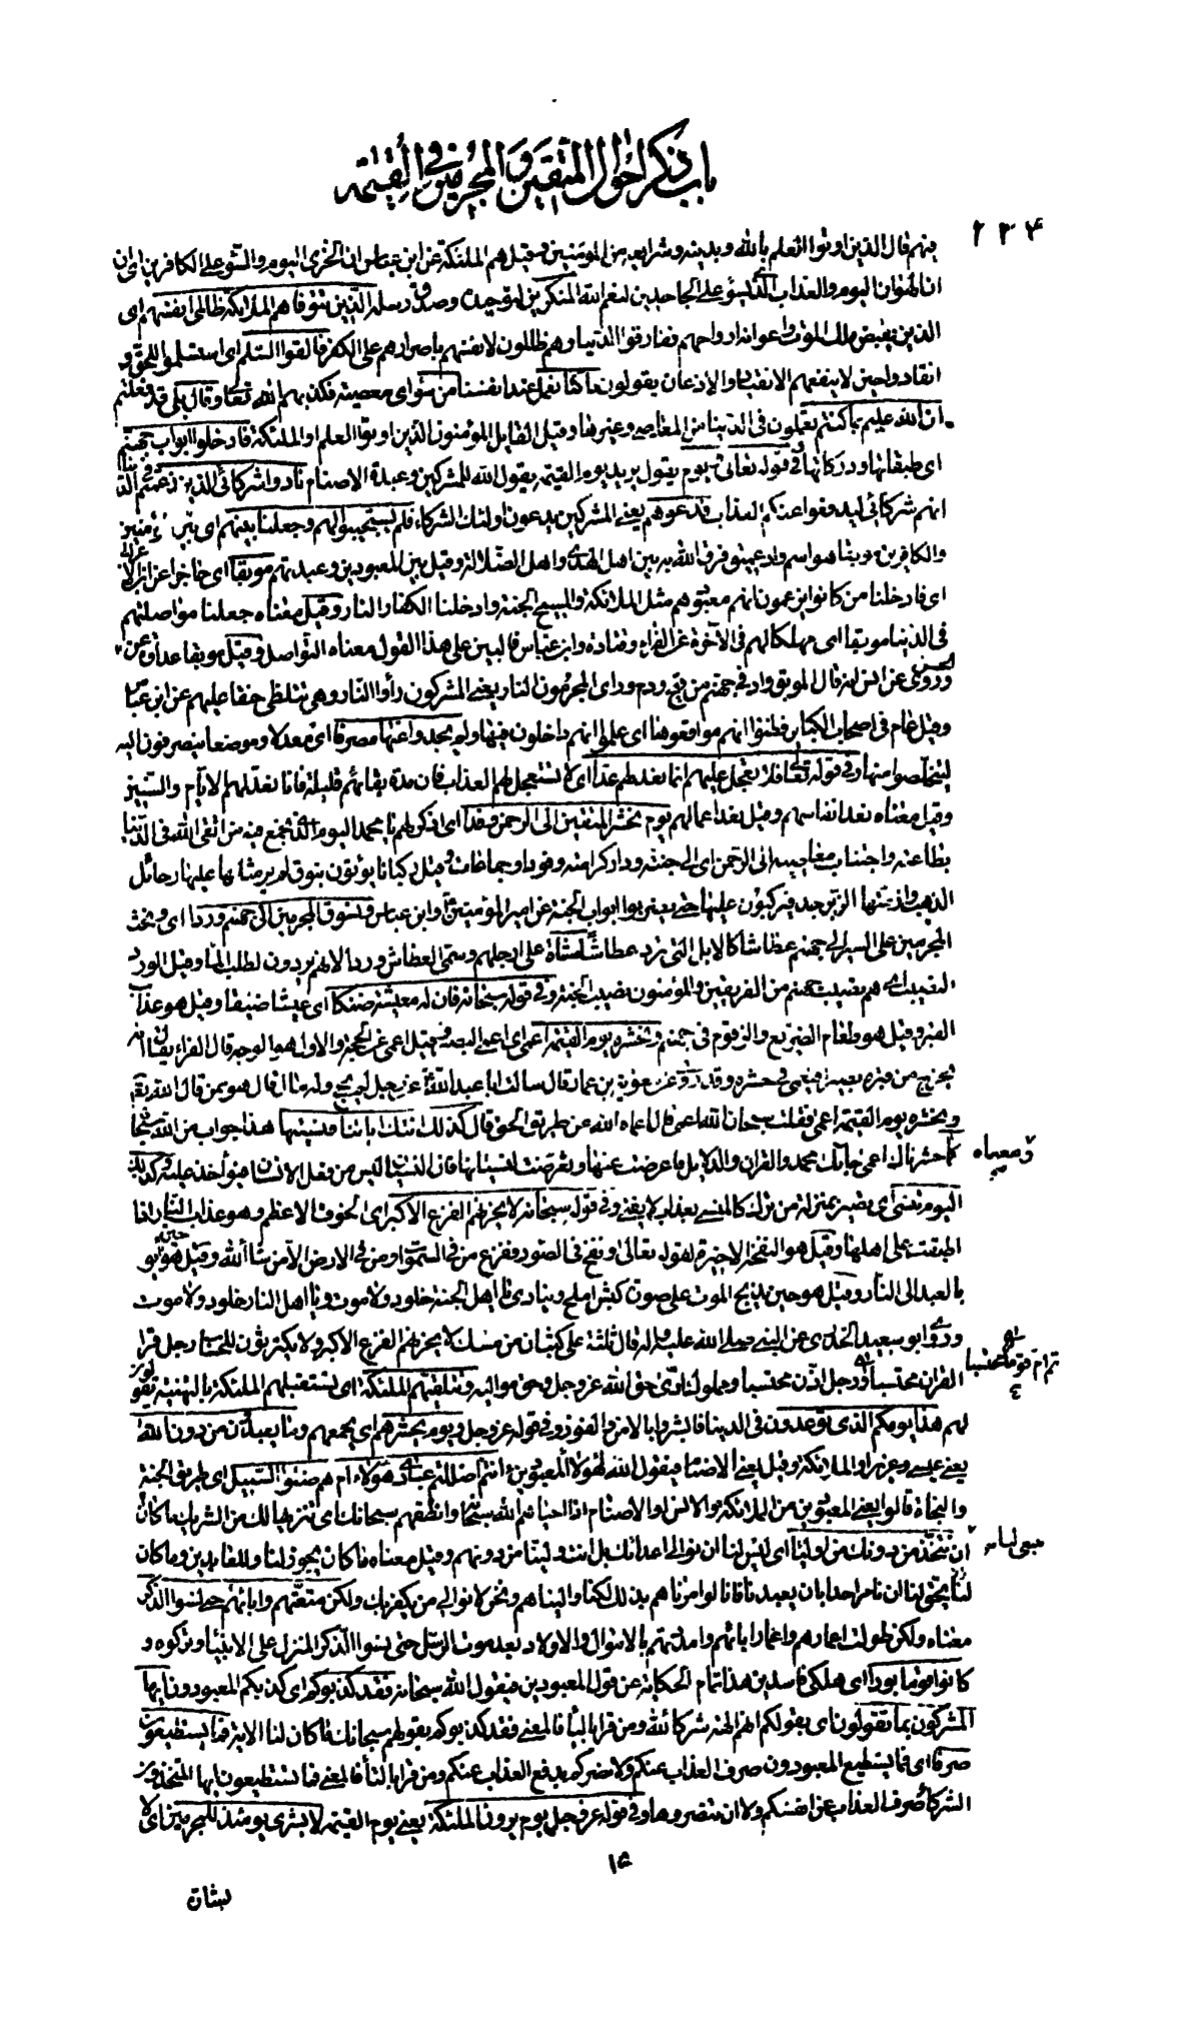 باب ذكر احوال المتقين والمجرمين في القيمة
٢٣۴
فيهم قال الذين اوتوا العلم بالله وبدينه وشرايعه من المؤمنين وقيل هم الملئكة عن ابن عباس ان الخزى اليوم والسوء على الكافرين اى ان
ان الهوان اليوم والعذاب الذى يسؤ على الجاحدين لنعم الله المنكرين لتوحيده وصدق رسله الذين تتوفاهم الملائكة ظالمى انفسهم اى
الذين يقبض ملك الموت واعوانه ارواحهم ففارقوا الدنيا وهم ظالمون لانفسهم باصرارهم على الكفر فالقوا السلم اى استسلموا للحق و
انقادوا حين لا ينفعهم الانقياد والاذعان يقولون ما كنا نعمل عند انفسنا من سوء اى معصية فكذبهم الله تعالى وقال بلى قد فعلتم
ان الله عليم بما كنتم تعملون فى الدنيا من المعاصى وغيرها وقيل القايل المؤمنون الذين اوتوا العلم او الملئكة فادخلوا ابواب جهنم
اى طبقاتها ودركاتها وفى قوله تعالى ويوم يقول يريد يوم القيمة يقول الله للمشركين وعبدة الاصنام نادوا شركائى الذين زعمتم فى الدنيا
انهم شركائى ليدفعوا عنكم العذاب فدعوهم يعنى المشركين يدعون اولئك الشركاء فلم يستجيبوا لهم وجعلنا بينهم اى بين المؤمنين
والكافرين موبقا هو اسم واد عميق فرق الله به بين اهل الهدى واهل الضلالة وقيل بين المعبودين وعبدتهم موبقا اى حاجزا عن ابن الاعرابى
اى فادخلنا من كانوا يزعمون انهم معبودهم مثل الملائكة والمسيح الجنة وادخلنا الكفار النار وقيل معناه جعلنا مواصلتهم
فى الدنيا موبقا اى مهلكا لهم فى الآخرة عن الفراء وقتادة وابن عباس فالبين على هذا القول معناه التواصل وقيل موبقا عداوة عن الحسن
وروى عن انس انه قال الموبق واد فى جهنم من قيح ودم وراى المجرمون النار يعنى المشركون رأوا النار وهى تتلظى حنقا عليهم عن ابن عباس
وقيل عام فى اصحاب الكباير فظنوا انهم مواقعوها اى علموا انهم داخلون فيها ولم يجدوا عنها مصرفا اى معدلا وموضعا ينصرفون اليه
ليتخلصوا منها وفى قوله تعالى فلا تعجل عليهم انما نعد لهم عدا اى لا تستعجل لهم العذاب فان مدة بقائهم قليلة فانا نعد لهم الايام والسنين
وقيل معناه نعد انفاسهم وقيل نعد اعمالهم يوم نحشر المتقين الى الرحمن وفدا اى اذكر لهم يا محمد اليوم الذى نجمع فيه من اتقى الله فى الدنيا
بطاعته واجتناب معاصيه الى الرحمن اى الى جنته ودار كرامته وفودا وجماعات وقيل ركبانا يؤتون بنوق لم ير مثلها عليها رحائل
الذهب وازمتها الزبرجد فيركبون عليها حتى يضربوا ابواب الجنة عن امير المؤمنين وابن عباس ونسوق المجرمين الى جهنم وردا اى ونحث
المجرمين على السير الى جهنم عطاشا كالابل التى ترد عطاشا مشاة على ارجلهم وسمى العطاش وردا لانهم يردون لطلب الماء وقيل الورد
النصيب اى هم نصيب جهنم من الفريقين والمؤمنون نصيب الجنة وفى قوله سبحانه فان له معيشة ضنكا اى عيشا ضيقا وقيل هو عذاب
القبر وقيل هو طعام الضريع والزقوم فى جهنم ونحشره يوم القيمة اعمى اى اعمى البصر وقيل اعمى عن الحجة والاول هو الوجه قال الفراء يقال انه
يخرج من قبره بصيرا فيعمى فى حشره وقد روى عن معوية بن عمار قال سالت ابا عبدالله ع عن رجل لم يحج وله مال قال هو ممن قال الله تعالى
ونحشره يوم القيمة اعمى فقلت سبحان الله اعمى قال اعماه الله عن طريق الحق قال كذلك اتتك اياتنا فنسيتها هذا جواب من الله سبحانه ومعناه
كما حشرناك اعمى جاءك محمد والقران والدلايل فاعرضت عنها وتعرضت لنسيانها فان النسيان ليس من فعل الانسان فيؤاخذ عليه وكذلك
اليوم تنسى اى تصير بمنزلة من ترك كالمنسى بعذاب لا يفنى وفى قوله سبحانه لا يحزنهم الفزع الاكبر اى الخوف الاعظم وهو عذاب النار اذا
اطبقت على اهلها وقيل هو النفخة الاخيرة لقوله تعالى ونفخ فى الصور ففزع من فى السموات ومن فى الارض الا من شاء الله وقيل هو حين يؤمر
بالعبد الى النار وقيل هو حين يذبح الموت على صورة كبش املح وينادى يا اهل الجنة خلود ولا موت ويا اهل النار خلود ولا موت
وروى ابو سعيد الخدرى عن النبى صلى الله عليه وآله قال ثلثة على كثبان من مسك لا يحزنهم الفزع الاكبر ولا يكترثون للحساب رجل قرا
القران محتسبا ثم ام قوما محتسبا ورجل اذن محتسبا ومملوك ادى حق الله عز وجل وحق مواليه وتتلقيهم الملئكة اى تستقبلهم الملئكة بالتهنية يقولون
لهم هذا يومكم الذى توعدون فى الدنيا فابشروا بالامن والفوز وفى قوله عز وجل ويوم يحشرهم اى يجمعهم وما يعبدون من دون الله
يعنى عيسى وعزير او الملائكة وقيل يعنى الاصنام فيقول الله لهؤلاء المعبودين ءانتم اضللتم عبادى هؤلاء ام هم ضلوا السبيل اى طريق الجنة
والنجاة قالوا يعنى المعبودين من الملائكة والانس او الاصنام اذا احياهم الله سبحانه وانطقهم سبحانك اى تنزيها لك من الشريك ما كان ينبغى لنا
ان نتخذ من دونك من اولياء اى ليس لنا ان نوالى اعدائك بل انت ولينا من دونهم وقيل معناه ما كان يجوز لنا وللعابدين وما كان
لنا يحق لنا ان نامر احدا بان يعبدنا فانا لو امرناهم بذلك لكنا واليناهم ونحن لا نوالى من يكفر بك ولكن متعتهم واباءهم حتى نسوا الذكر
معناه ولكن طولت اعمارهم واعمار ابائهم وامددتهم بالاموال والاولاد بعد موت الرسل حتى نسوا الذكر المنزل على الانبياء وتركوه و
كانوا قوما بورا اى هلكى فاسدين هذا تمام الحكاية عن قول المعبودين فيقول الله سبحانه فقد كذبوكم اى كذبكم المعبودون ايها
المشركون بما تقولون اى بقولكم انهم الهة شركاء لله ومن قرا بالياء فالمعنى فقد كذبوكم بقولهم سبحانك ما كان لنا الاية فما يستطيعون
صرفا اى فما يستطيع المعبودون صرف العذاب عنكم ولا نصركم بدفع العذاب عنكم ومن قرا بالتاء فالمعنى فما تستطيعون ايها المتخذون
الشركاء صرف العذاب عن انفسكم ولا ان تنصروها وفى قوله عز وجل يوم يرون الملئكة يعنى يوم القيمة لا بشرى يومئذ للمجرمين اى لا
بشارة